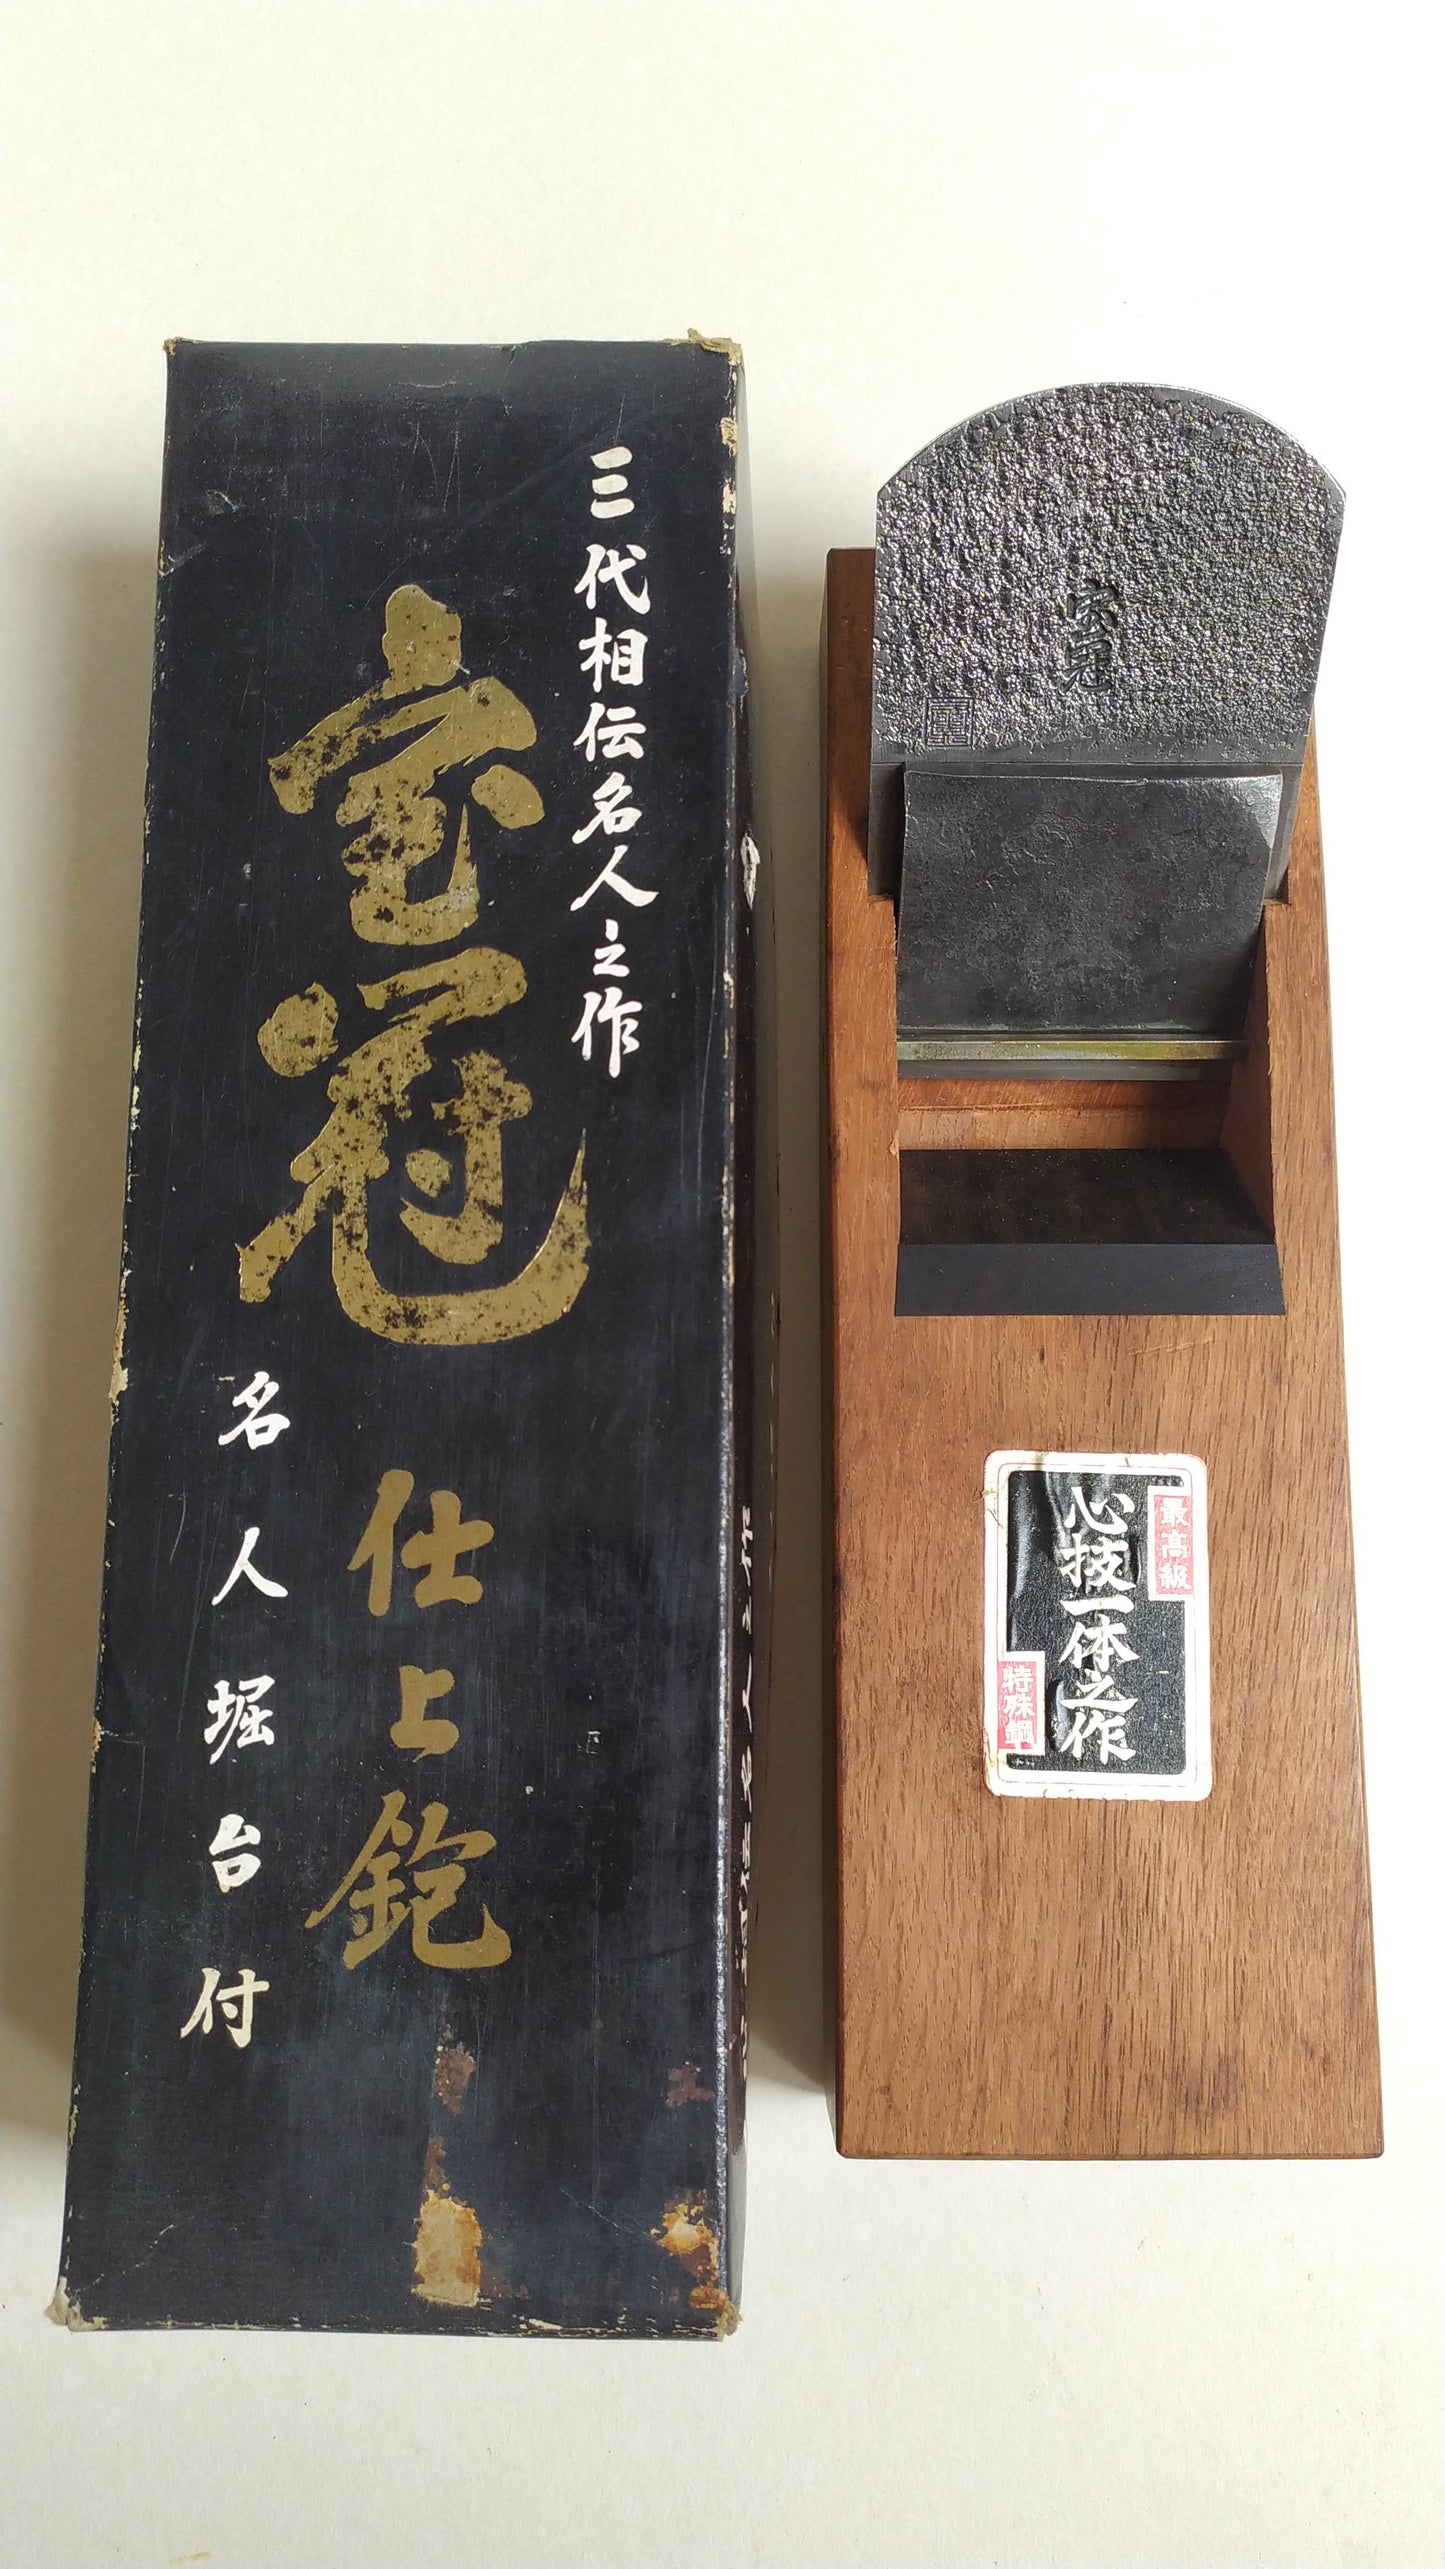 三代相伝名人之作
宝冠
仕上鉋
名人堀台付
宝冠
最高級
心技一体之作
特殊鋼